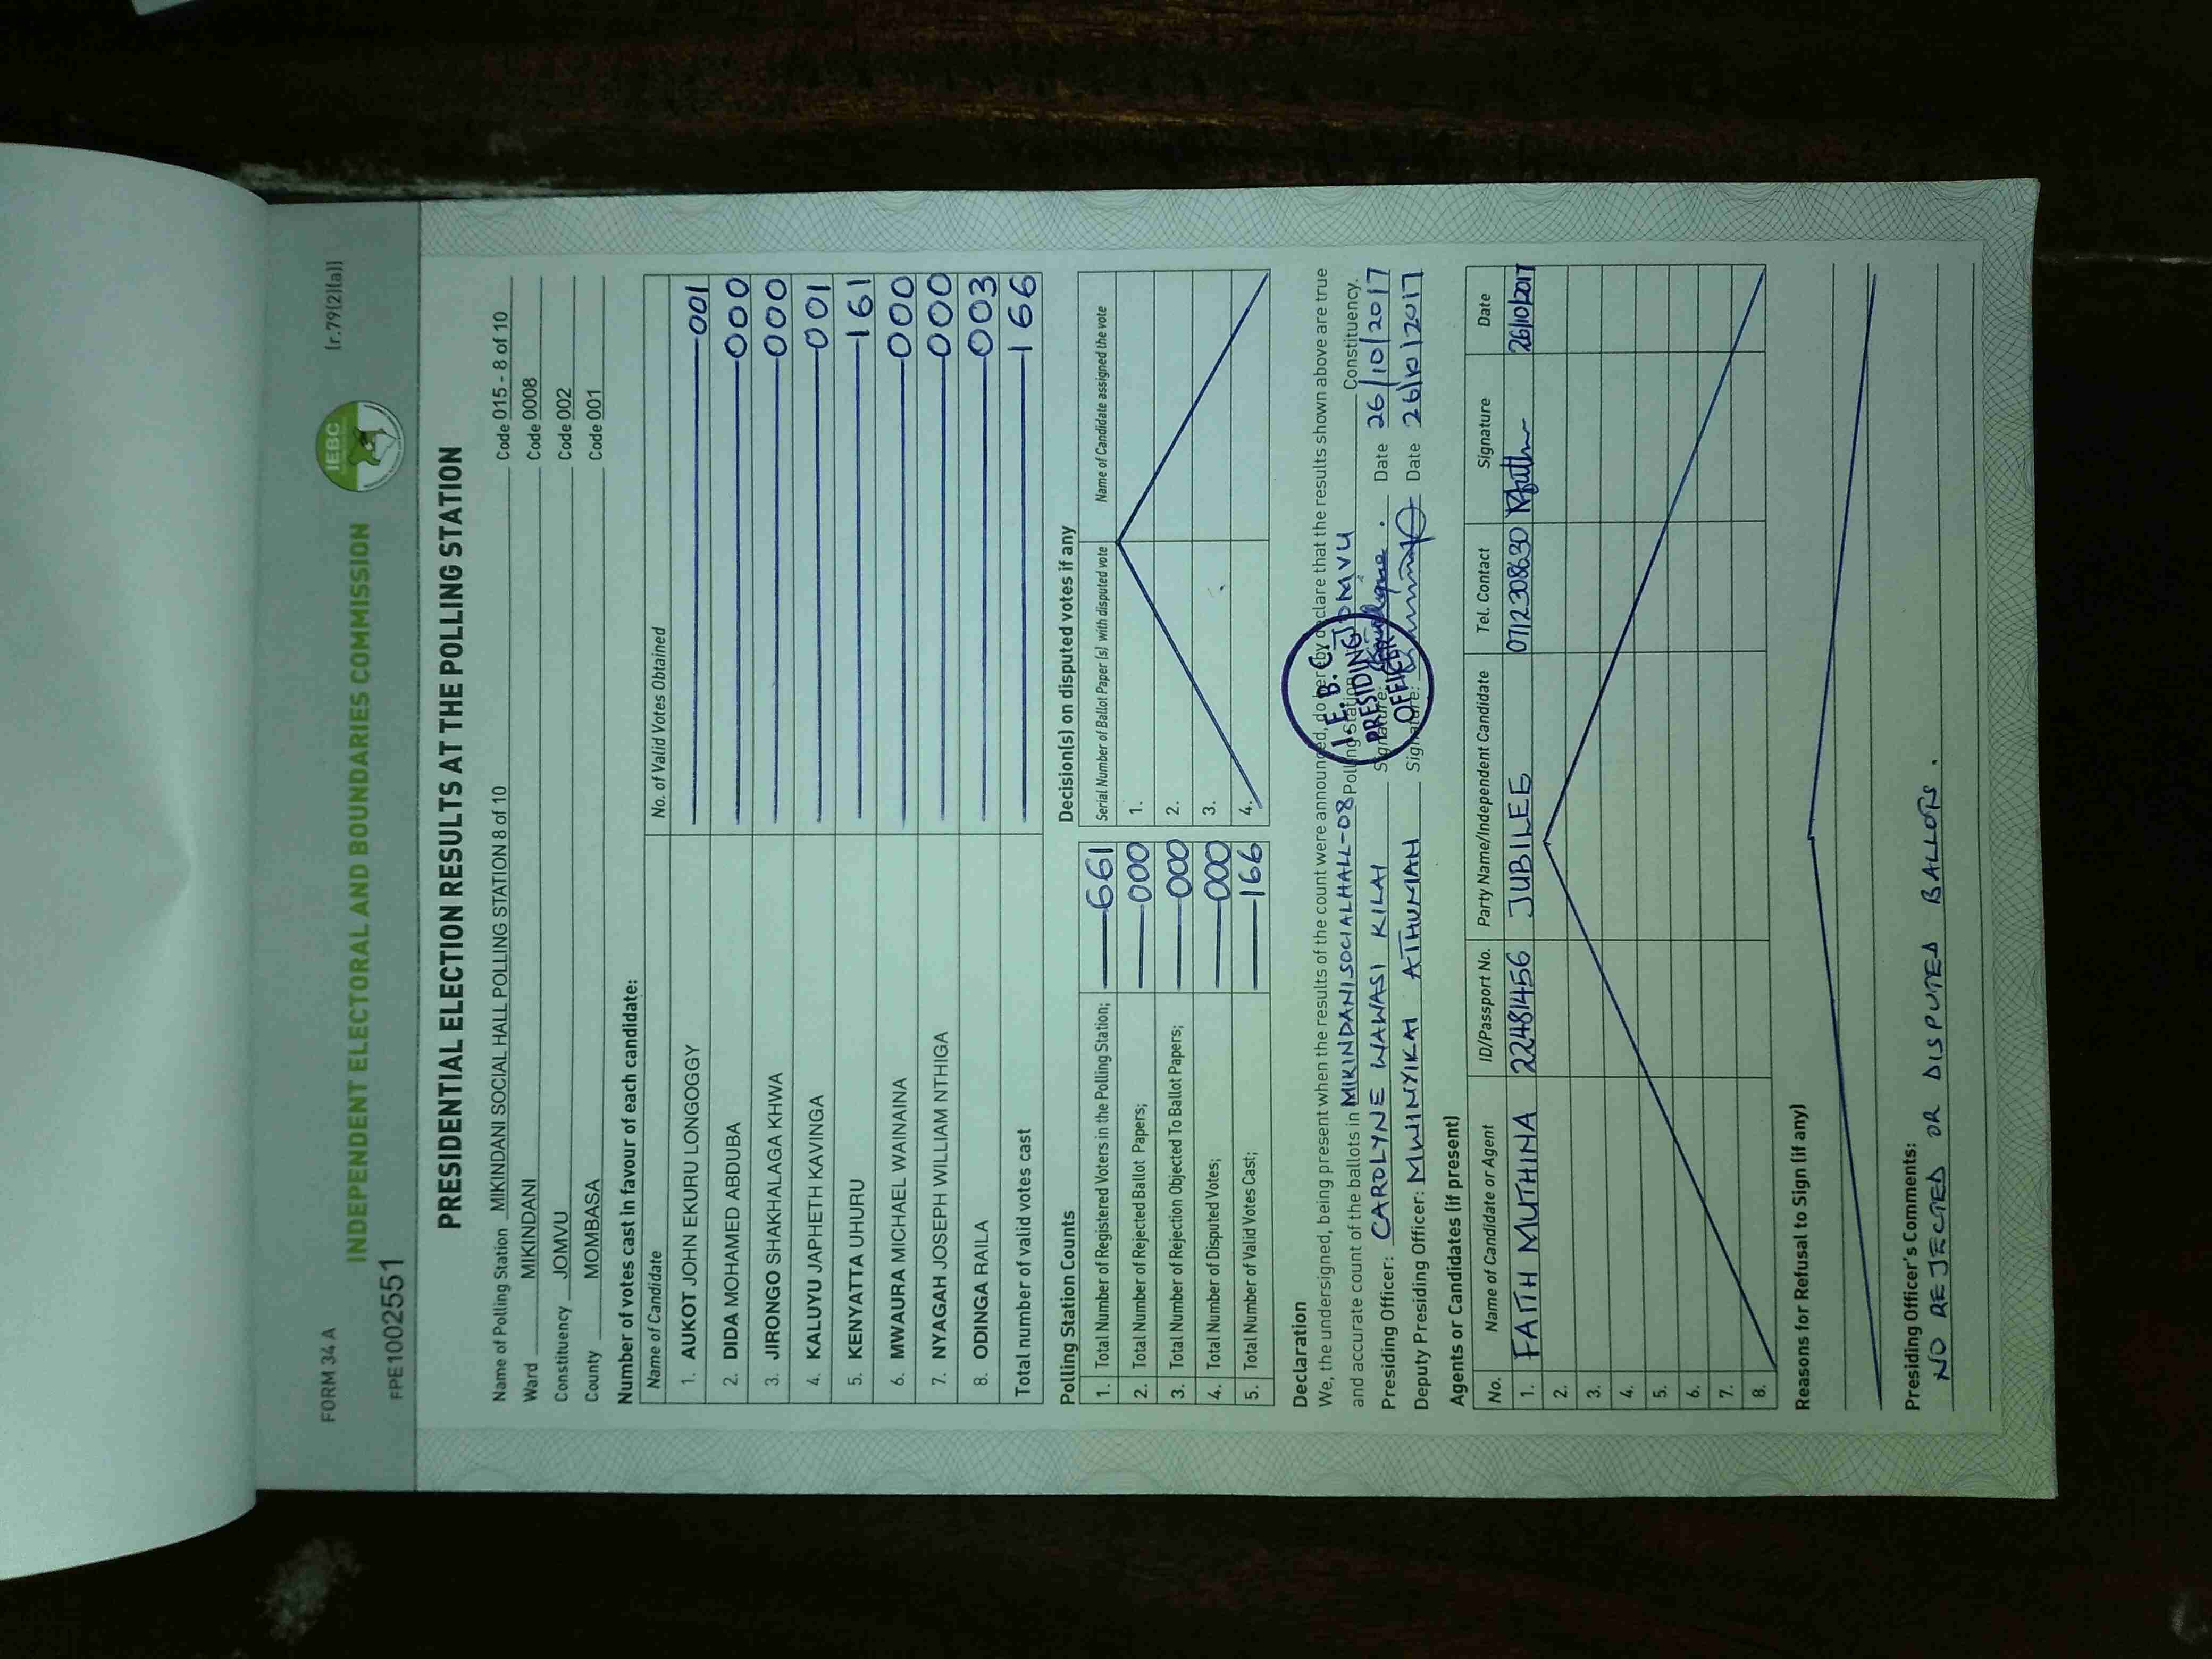 FORM 34 A
[r.79(2)(a)]
INDEPENDENT ELECTORAL AND BOUNDARIES COMMISSION
IEBC
FPE1002551
PRESIDENTIAL ELECTION RESULTS AT THE POLLING STATION
Name of Polling Station MIKINDANI SOCIAL HALL POLLING STATION 8 of 10 Code 015 - 8 of 10
Ward MIKINDANI Code 0008
Constituency JOMVU Code 002
County MOMBASA Code 001
Number of votes cast in favour of each candidate:
Name of Candidate No. of Valid Votes Obtained
1. AUKOT JOHN EKURU LONGOGGY 001
2. DIDA MOHAMED ABDUBA 000
3. JIRONGO SHAKHALAGA KHWA 000
4. KALUYU JAPHETH KAVINGA 001
5. KENYATTA UHURU 161
6. MWAURA MICHAEL WAINAINA 000
7. NYAGAH JOSEPH WILLIAM NTHIGA 000
8. ODINGA RAILA 003
Total number of valid votes cast 166
Polling Station Counts
1. Total Number of Registered Voters in the Polling Station; 661
2. Total Number of Rejected Ballot Papers; 000
3. Total Number of Rejection Objected To Ballot Papers; 000
4. Total Number of Disputed Votes; 000
5. Total Number of Valid Votes Cast; 166
Decision(s) on disputed votes if any
Serial Number of Ballot Paper (s) with disputed vote Name of Candidate assigned the vote
1.
2.
3.
4.
Declaration
We, the undersigned, being present when the results of the count were announced, do hereby declare that the results shown above are true
and accurate count of the ballots in MIKINDANI SOCIAL HALL-08 Polling Station JOMVU Constituency.
Presiding Officer: CAROLYNE WAWASI KILAI Signature: Date 26/10/2017
Deputy Presiding Officer: MWINYIKAI ATHUMAN Signature: Date 26/10/2017
I.E.B.C.
PRESIDING
OFFICER
Agents or Candidates (if present)
No. Name of Candidate or Agent ID/Passport No. Party Name/Independent Candidate Tel. Contact Signature Date
1. FAITH MUTHINA 22481456 JUBILEE 0712308630 26/10/2017
2.
3.
4.
5.
6.
7.
8.
Reasons for Refusal to Sign (if any)
Presiding Officer's Comments:
NO REJECTED OR DISPUTED BALLOTS.